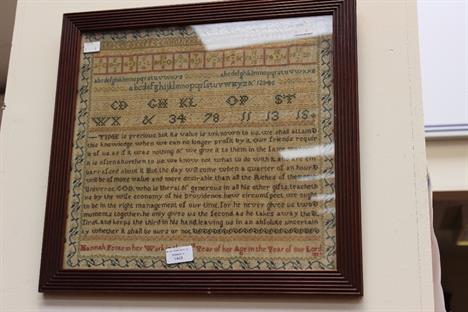 abcdefghijklmnopqrstuvwxyz abcdefghijklmnopqrstuvwxyz
abcdefghijklmnopqrstuvwxyz
CD GH KL OP ST
WX & 34 78 11 13 15
TIME is precious but its value is unknown to us. we shall attain
this knowledge when we can no longer profit by it. our friends requir
e of us as if it was nothing & we give it to them in the same way. it
is often a burthen to us. we know not what to do with it. and are em
barrased about it. But the day will come when a quarter of an hour
will be of more value and more desirable than all the Riches of the
Universe. GOD, who is liberal & generous in all his other gifts, teaches
us by the wife economy of his Providence how circumspect we ought
to be in the right management of our time, for he never gives us two
moments together. he only gives us the second as he takes away the
first. and keeps the third in his hand. leaving us in an absolute uncertain
ty whether it shall be ours or not
Hannah her Work in the Year of her Age in the Year of our Lord